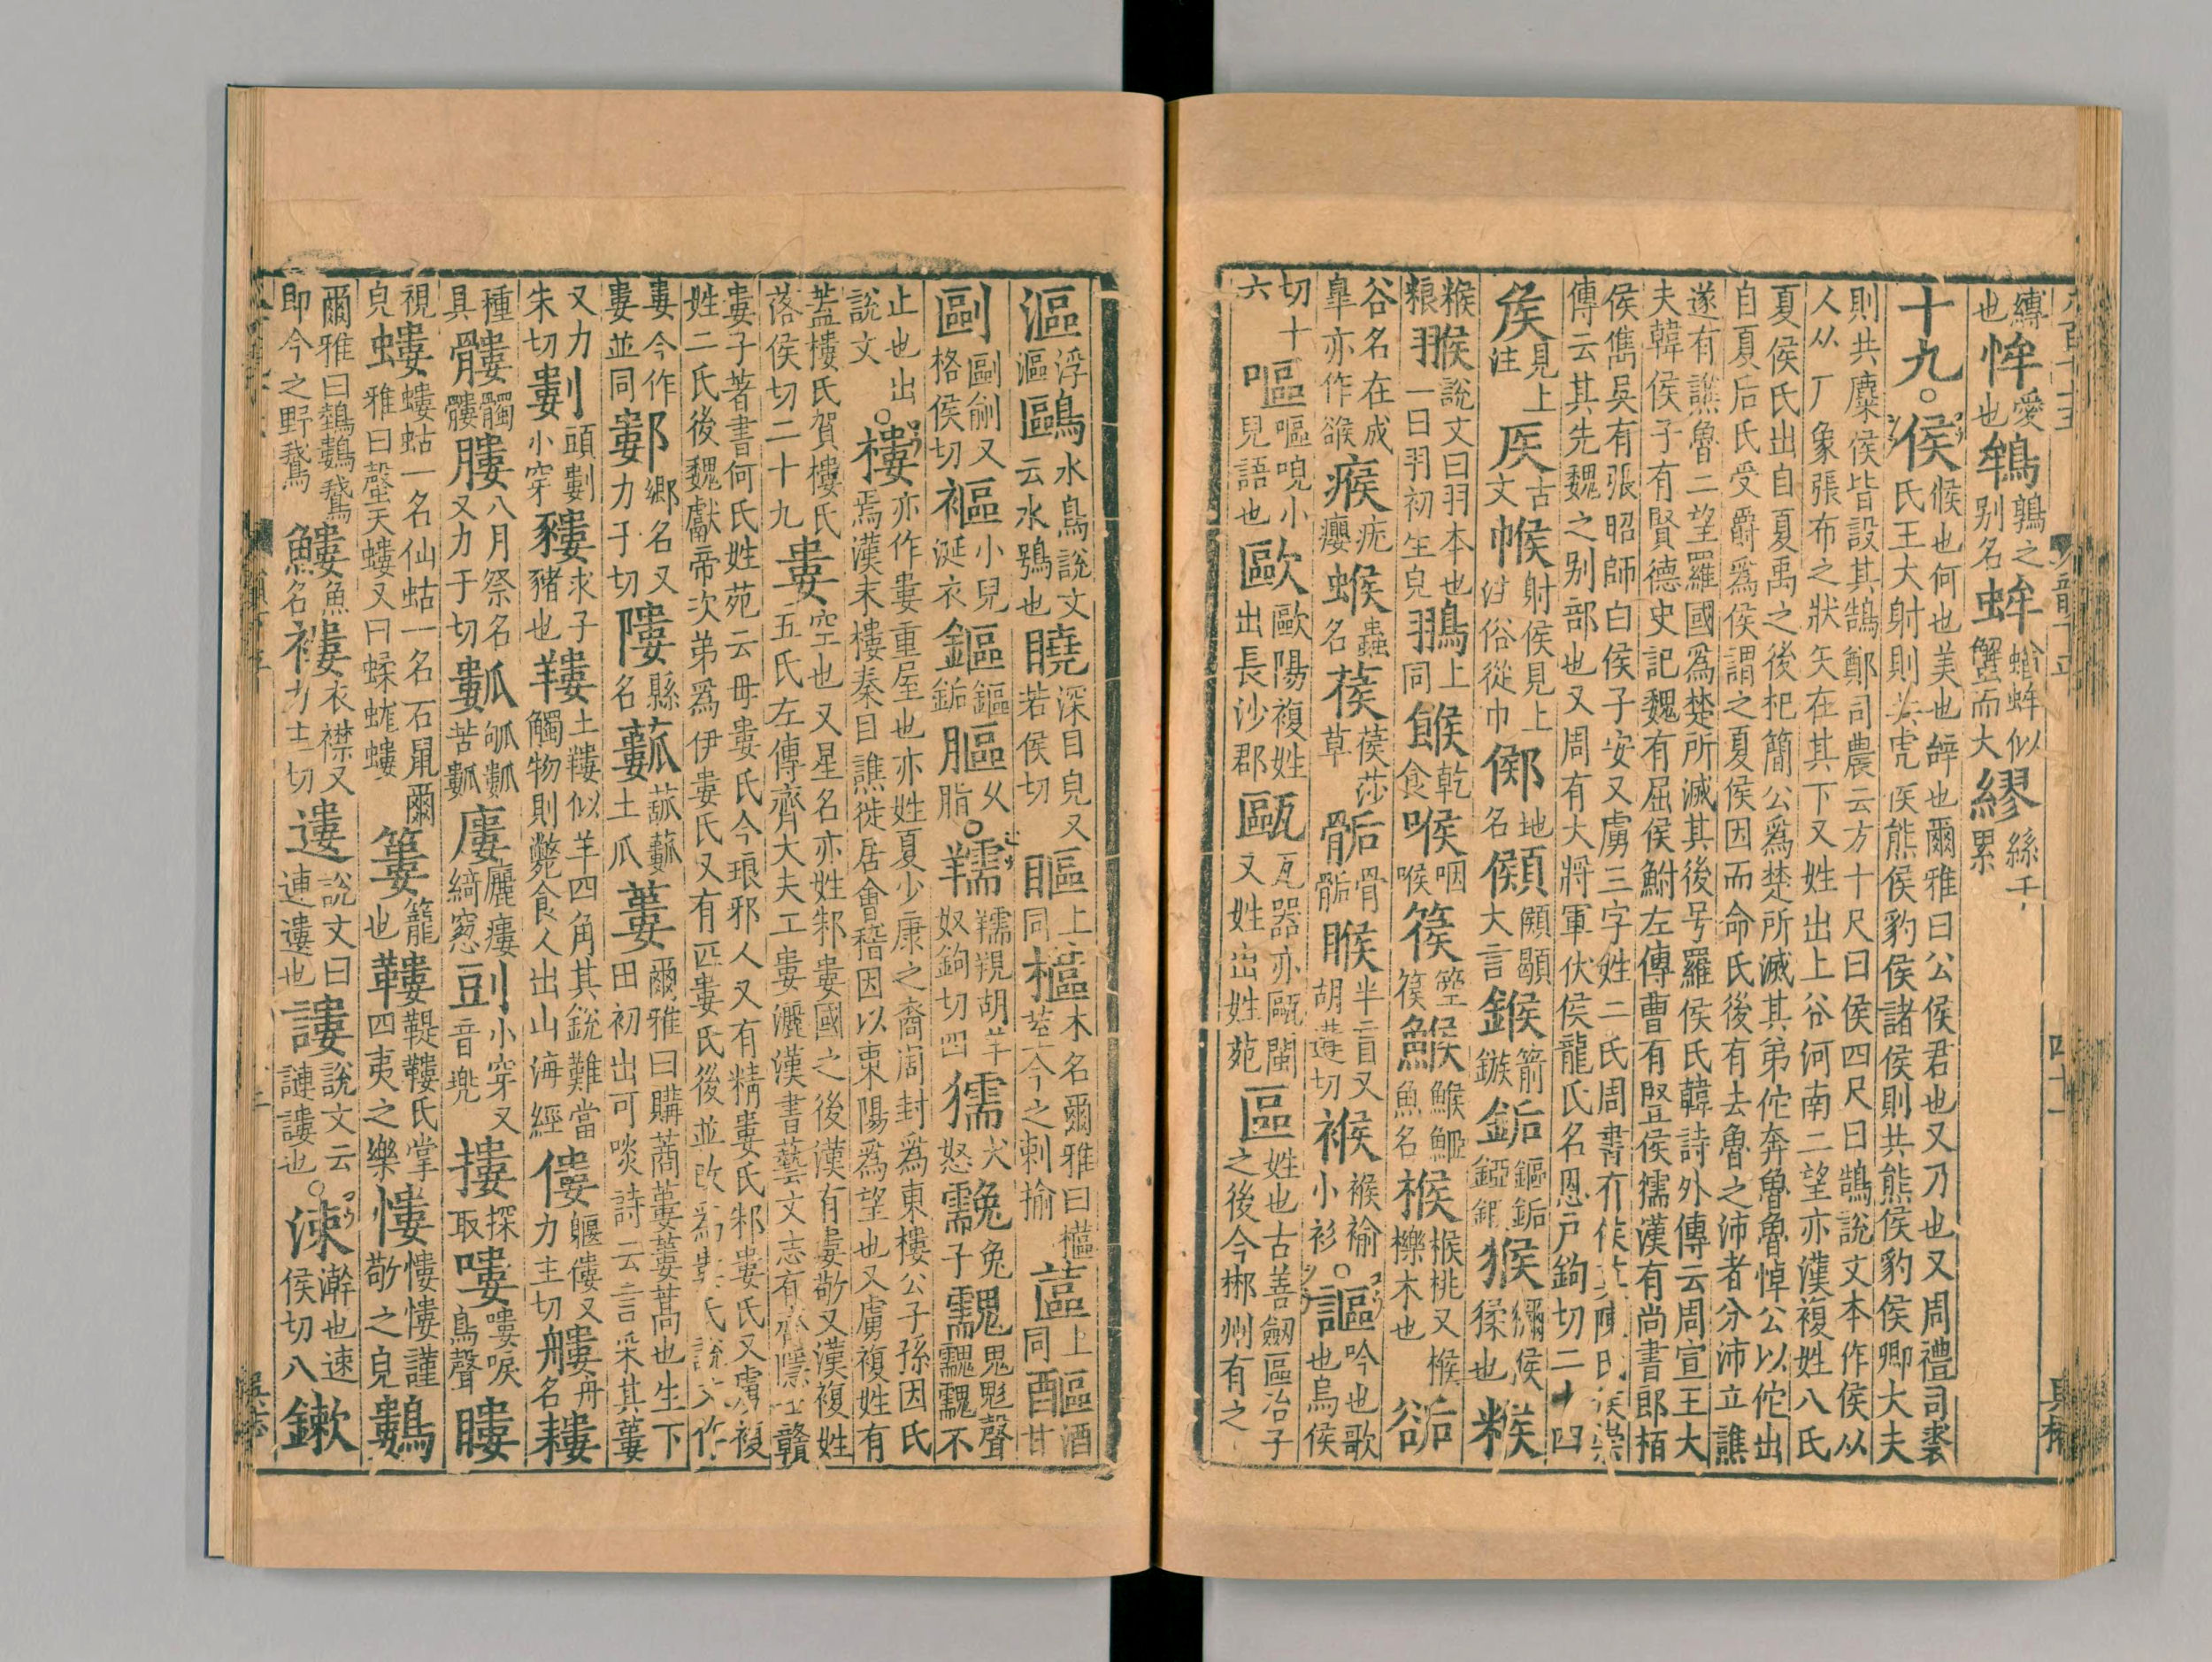 縛也恈愛也鴾鶉之别名蛑蝤蛑似蟹而大繆絲千累
十九。侯候也何也美也辝也爾雅曰公侯君也又乃也又周禮司裘
氏王大射則共虎侯熊侯豹侯諸侯則共熊侯豹侯卿大夫
則共麋侯皆設其鵠鄭司農云方十尺曰侯四尺曰鵠說文本作侯从
人从厂象張布之狀矢在其下又姓出上谷河南二望亦漢複姓八氏
夏侯氏出自夏禹之後杞簡公爲楚所滅其弟佗奔魯魯悼公以佗出
自夏后氏受爵爲侯謂之夏侯因而命氏後有去魯之沛者分沛立譙
遂有譙魯二望羅國爲楚所滅其後号羅侯氏韓詩外傳云周宣王大
夫韓侯子有賢德史記魏有屈侯鮒左傳曹有豎侯獳漢有尚書郎栢
侯雋吳有張昭師白侯子安又虜三字姓二氏周書有侯莫陳氏侯崇
傳云其先魏之别部也又周有大將軍伏侯龍氏名恩戶鉤切二十四
矦見上注𥎦古文帿射侯見上注俗從巾鄇地名𩑡大言鍭箭鏃銗鏂銗錏鍜猴獼猴猱也糇
糇粮翭說文曰羽本也一曰羽初生皃䳧上同餱乾食喉咽喉篌箜篌鯸鯸䱌魚名㮢㮢桃又㮢櫟木也𧮶
谷名在成臯亦作𧮶瘊疣癭㺅蟲名葔葔莎草骺骨骺睺半盲又胡遘切𧚦𧚦褕小衫。謳吟也歌也烏侯
切十六嘔嘔唲小兒語也歐歐陽複姓出長沙郡甌瓦器亦甌閩又姓出姓苑區姓也古善劒區冶子之後今郴州有之
漚浮漚鷗水鳥說文云水鴞也䁱深目皃又若侯切𥈬上同櫙木名爾雅曰櫙荎今之刺揄蓲上同醧酒甘
剾剾剜又格侯切㡤小兒涎衣鏂鏂銗膒久脂。羺羺䍲胡羊奴鉤切四獳犬怒㝹兔子䰰鬼鬽聲䰰䰰不
止也出說文。樓亦作婁重屋也亦姓夏少康之裔周封爲東樓公子孫因氏
焉漢末樓秦自譙徙居會稽因以東陽爲望也又虜複姓有
蓋樓氏賀樓氏落侯切二十九婁空也又星名亦姓邾婁國之後漢有婁敬又漢複姓
五氏左傳齊大夫工婁灑漢書藝文志有齊隱士贛
婁子著書何氏姓苑云毋婁氏今琅邪人又有精婁氏邾婁氏又虜複
姓二氏後魏獻帝次弟爲伊婁氏又有匹婁氏後並改爲婁氏說文作
婁今作婁並同鄻鄉名又力于切𨻻縣名䕉㼋䕉土瓜蔞爾雅曰購蔏蔞蔞蒿也生下田初出可啖詩云言采其蔞
又力朱切㔷頭㔷小穿貗求子豬也𦎹土𦎹似羊四角其銳難當觸物則斃食人出山海經僂軁僂又力主切艛舟名耬
種具髏髑髏膢八月祭名又力于切㼋瓠㼋苦㼋廔麗廔綺窻㓱小穿又音兠摟探取嘍嘍唳鳥聲瞜
視皃螻螻蛄一名仙蛄一名石鼠爾雅曰螜天螻又曰蝚蛖螻簍籠也鞻鞮鞻氏掌四夷之樂慺慺慺謹敬之皃鷜
爾雅曰鵱鷜鵝即今之野鵝鱳魚名褸衣襟又力主切遱說文曰連遱也謱說文云謰謱也。涑澣也速侯切八鏉